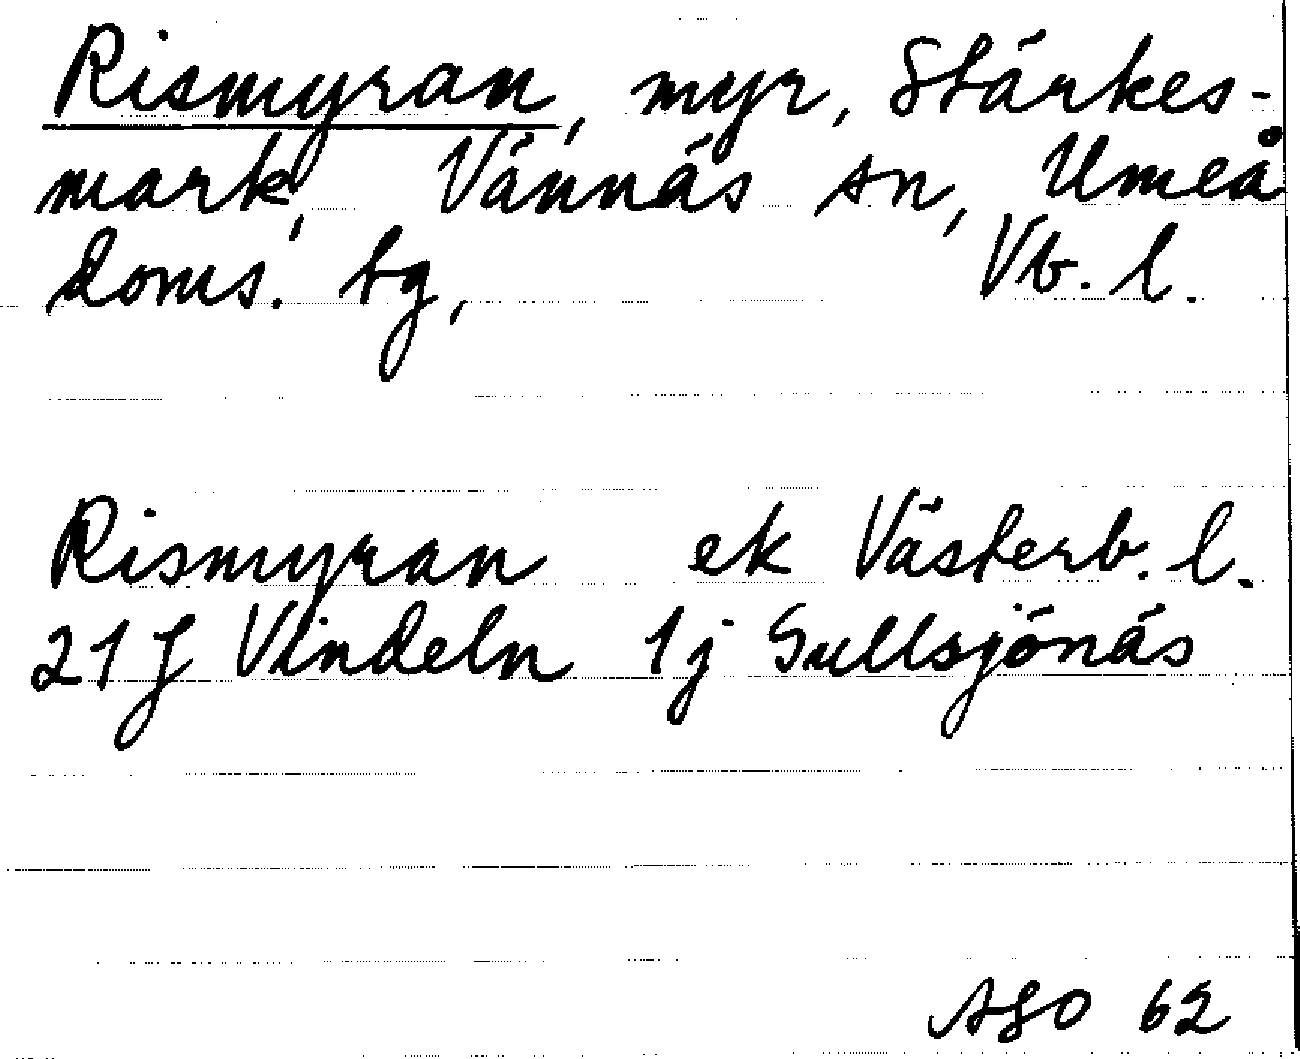 Rismyran, myr, Stärkes-
mark, Vännäs sn, Umeå
doms. tg, Vb. l.
Rismyran ek Västerb. l.
21 J Vindeln 1j Gullsjönäs
AGO 62